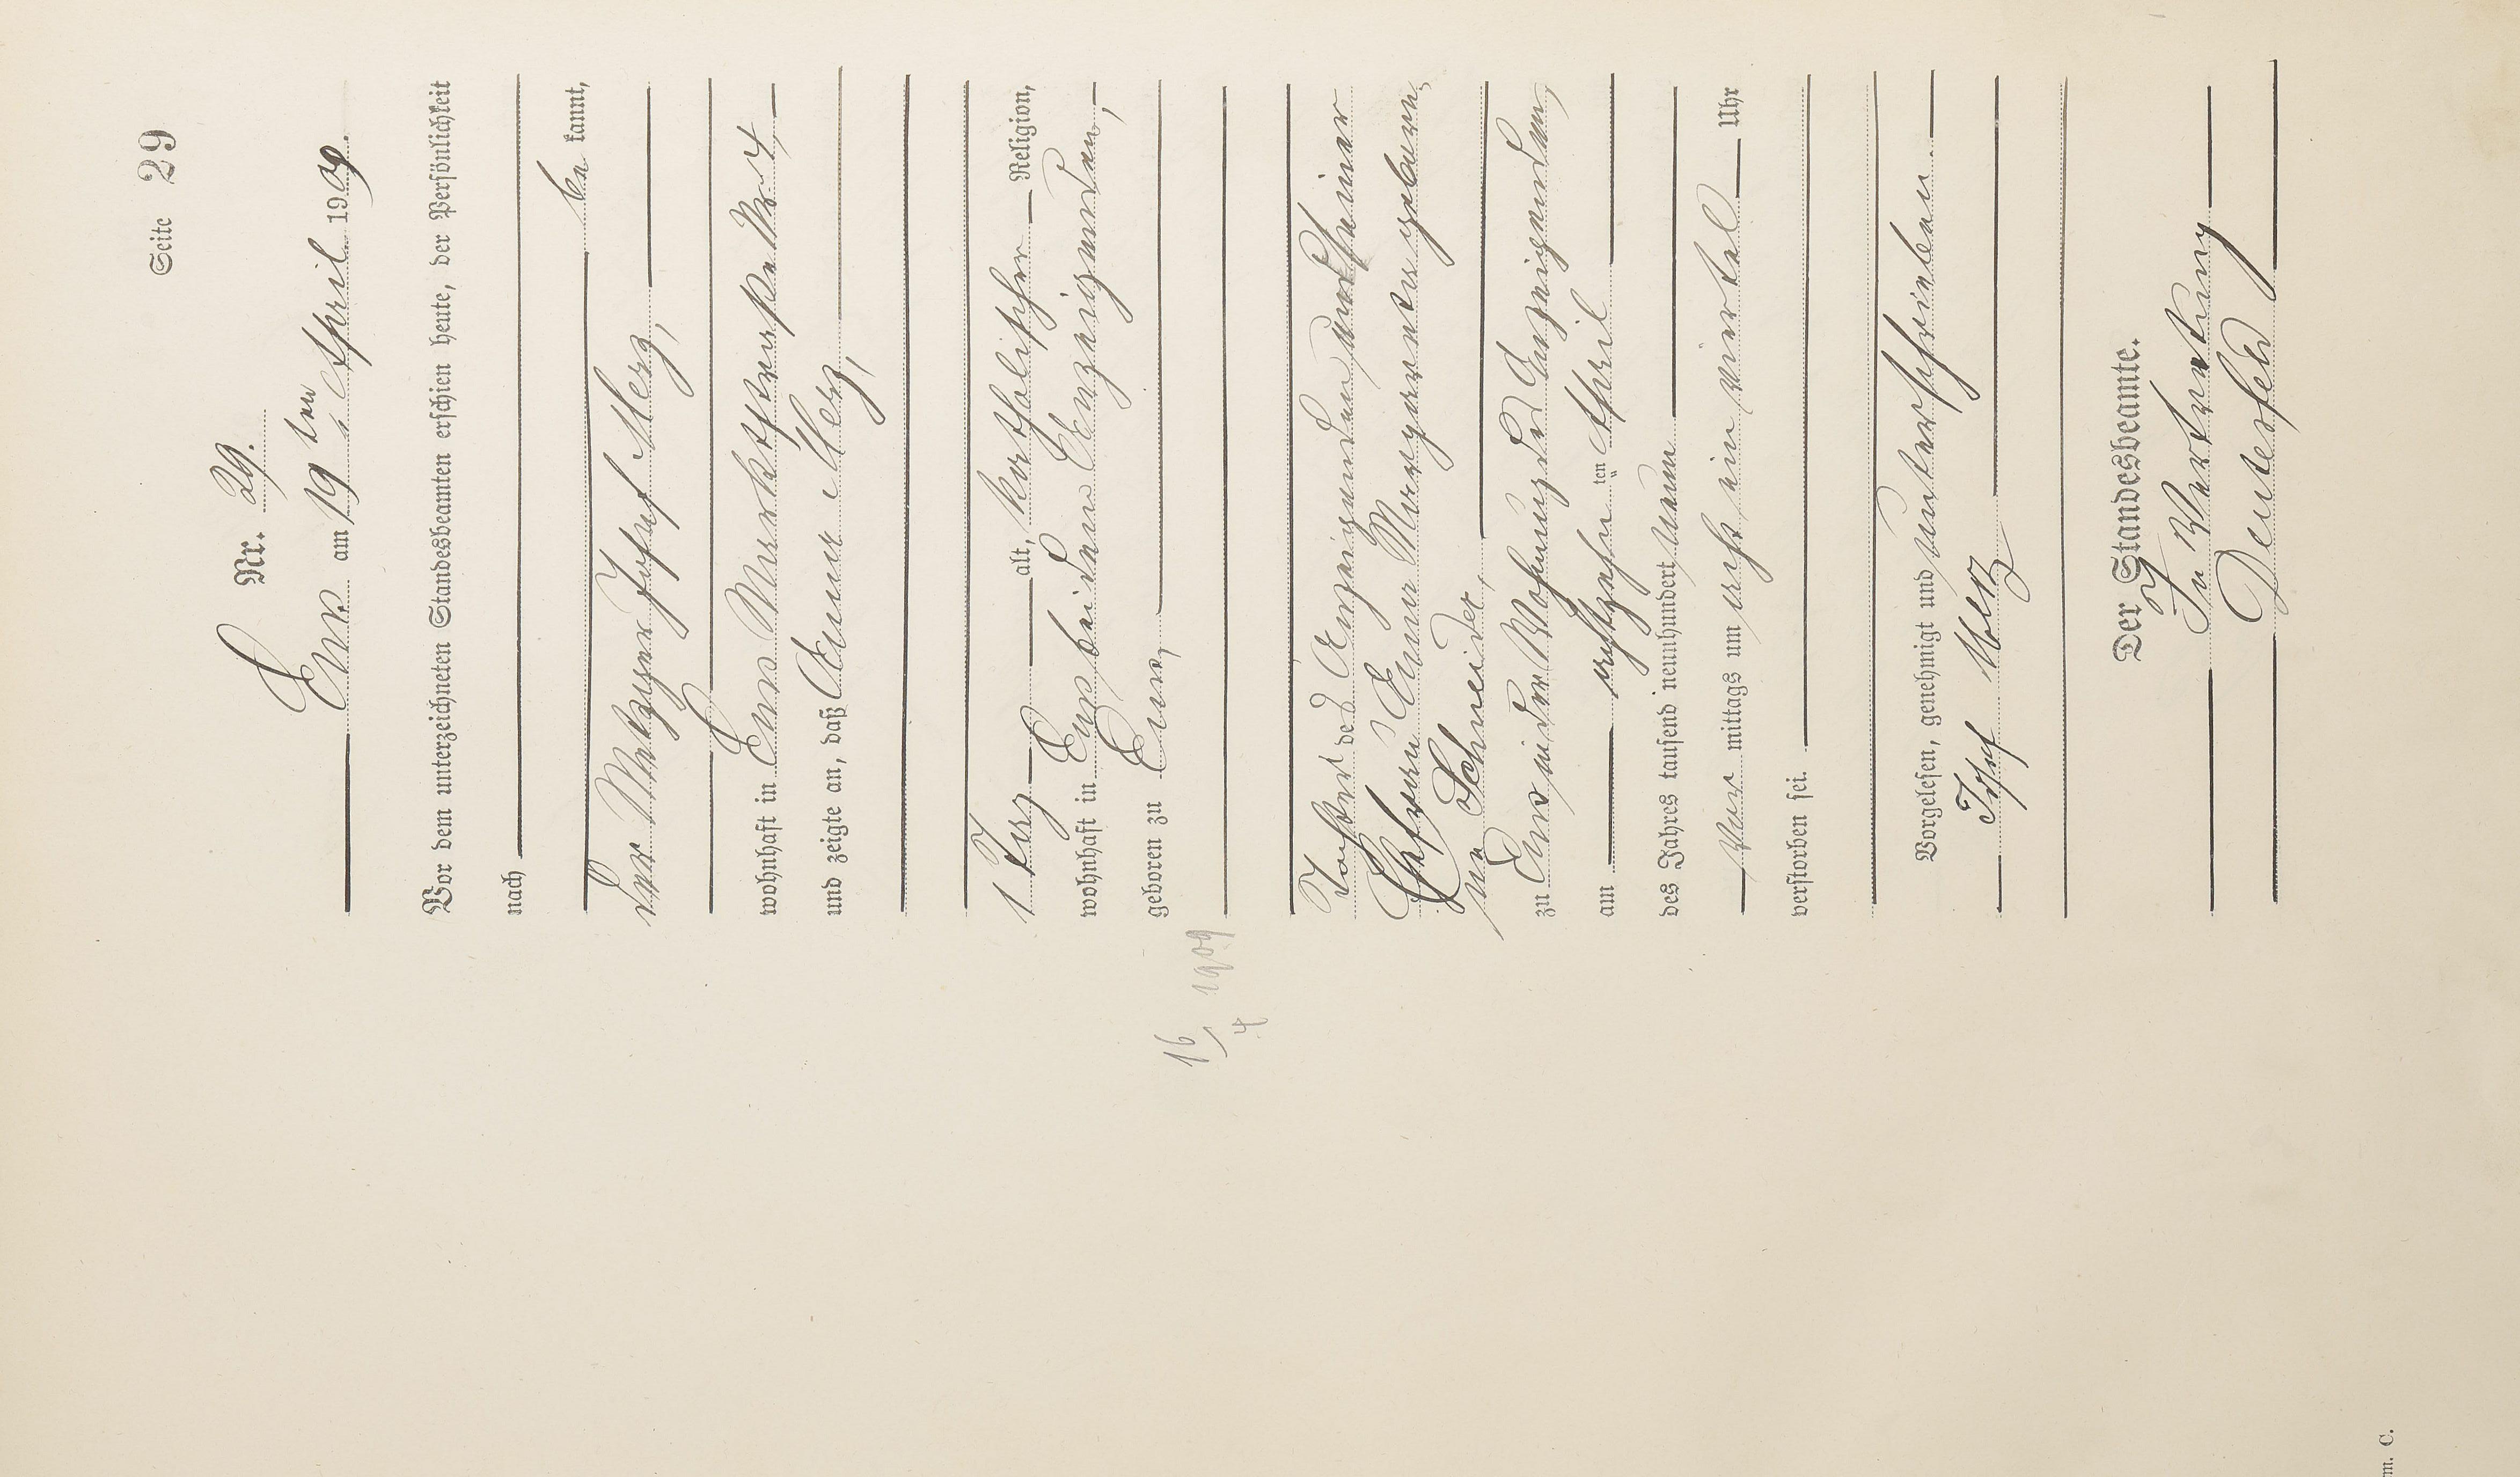 Seite 29
Nr. 29.
Ems am 19ten April 1909.
Vor dem unterzeichneten Standesbeamten erschien heute, der Persönlichkeit
nach
be kannt,
der Metzger Josef Merz,
wohnhaft in Ems Marktstraße No 4
und zeigte an, daß Anna Merz,
1 Tag alt, katholischer Religion,
wohnhaft in Ems bei dem Anzeigenden,
geboren zu Ems,
16/4 1909
Tochter des Anzeigenden und seiner
Ehefrau Anna Margareta gebore-
ne Schneider,
zu Ems in der Wohnung des Anzeigenden,
am achtzehn ten April
des Jahres tausend neunhundert neun
Vor mittags um acht ein viertel Uhr
verstorben sei.
Vorgelesen, genehmigt und unterschrieben.
Josef Merz
Der Standesbeamte.
In Vertretung
m. C.